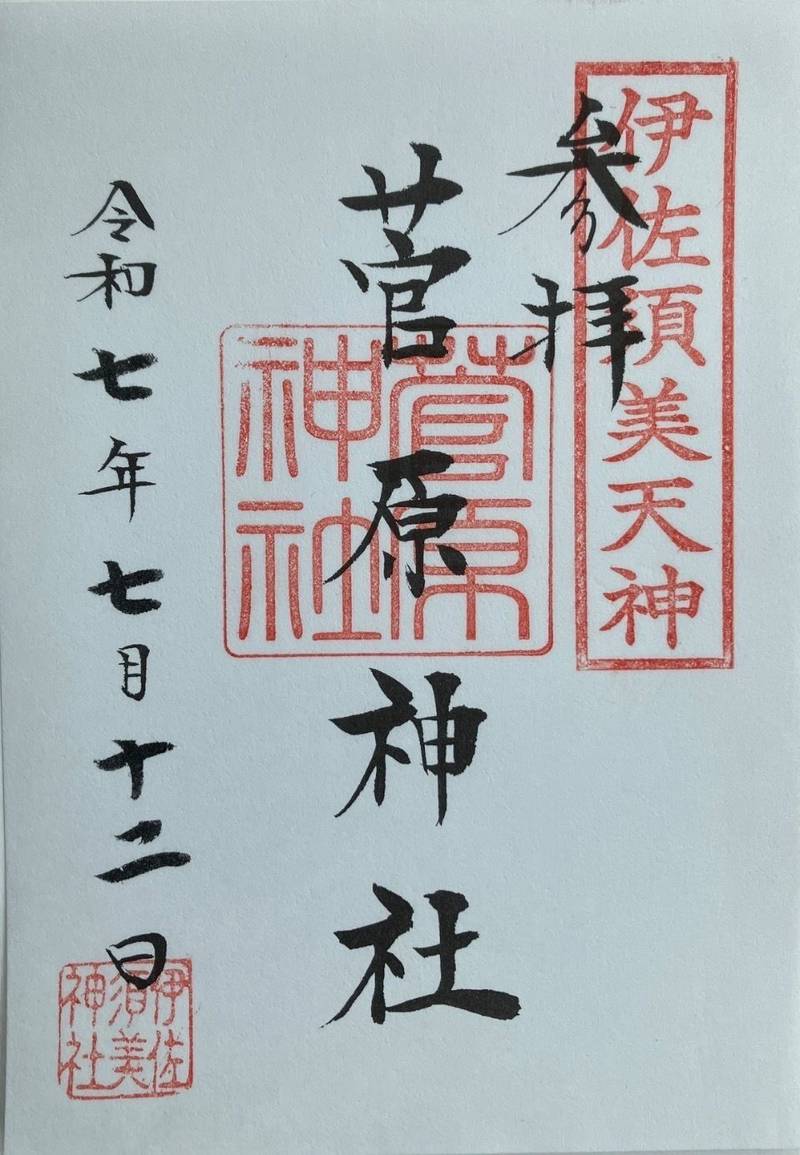 伊佐須美天神
参拝
菅原神社
菅原
神社
令和七年七月十二日
伊佐
須美
神社